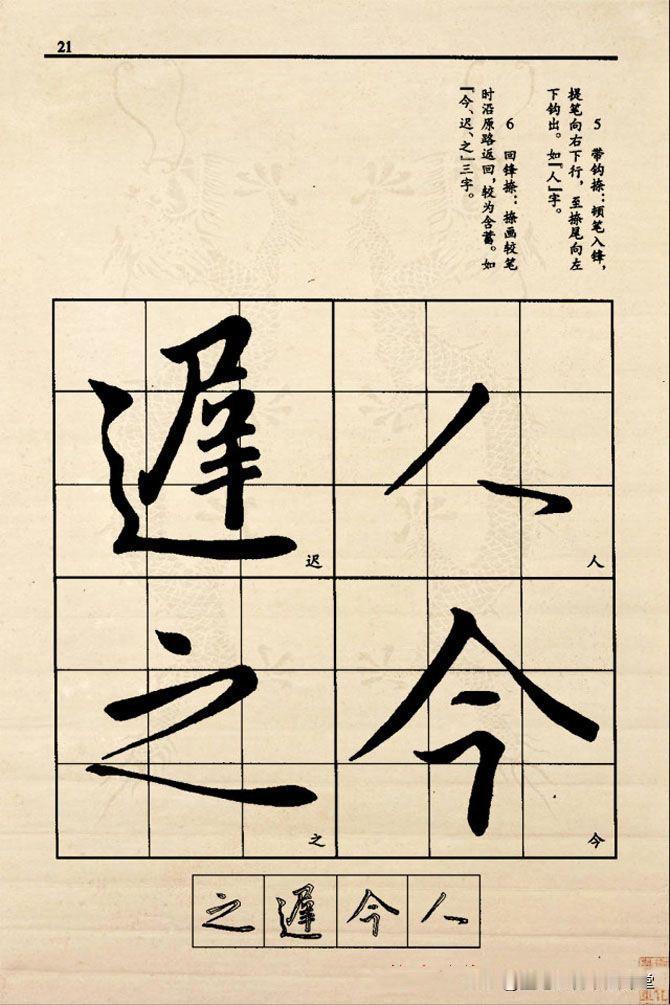 21
5 带钩捺：顿笔入锋，
提笔向右下行，至捺尾向左
下钩出。如『人』字。
6 回锋捺：捺画较笔
时沿原路返回，较为含蓄。如
『今、迟、之』三字。
人
人
遲
迟
今
今
之
之
之 遲 今 人